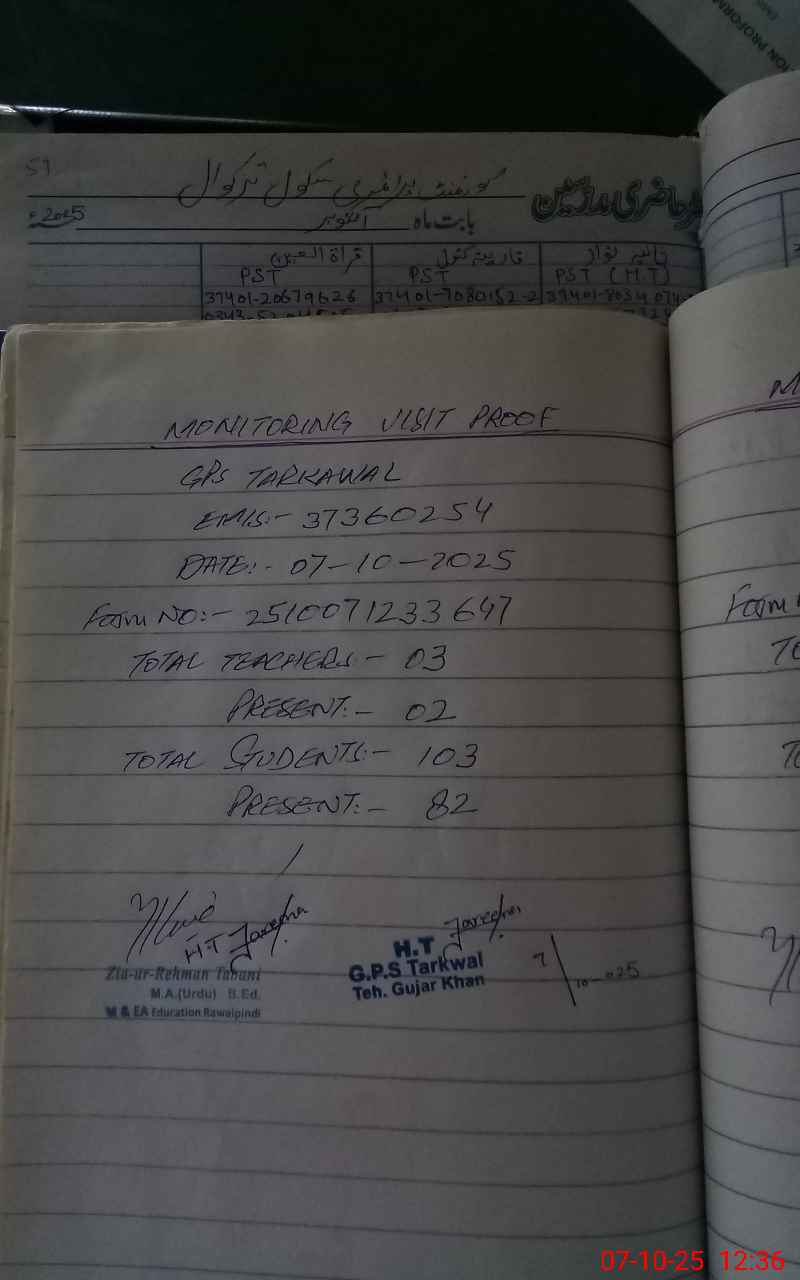 ION PROFORM
51
گورنمنٹ پرائمری سکول ترکوال
حاضری مدرسین
بابت ماہ اکتوبر 2025ء
قراۃ العین
PST PST PST (H.T)
37401-20679626 37401-7080152-2
0343-52
MONITORING VISIT PROOF
GPS TARKAWAL
EMIS:- 37360254
DATE:- 07-10-2025
Form NO:- 2510071233647
TOTAL TEACHERS:- 03
PRESENT:- 02
TOTAL STUDENTS:- 103
PRESENT:- 82
H.T
Zia-ur-Rehman Tabani
M.A.(Urdu) B.Ed.
M & EA Education Rawalpindi
H.T
G.P.S Tarkwal
Teh. Gujar Khan
7/10-025
M
Form
To
To
07-10-25 12:36